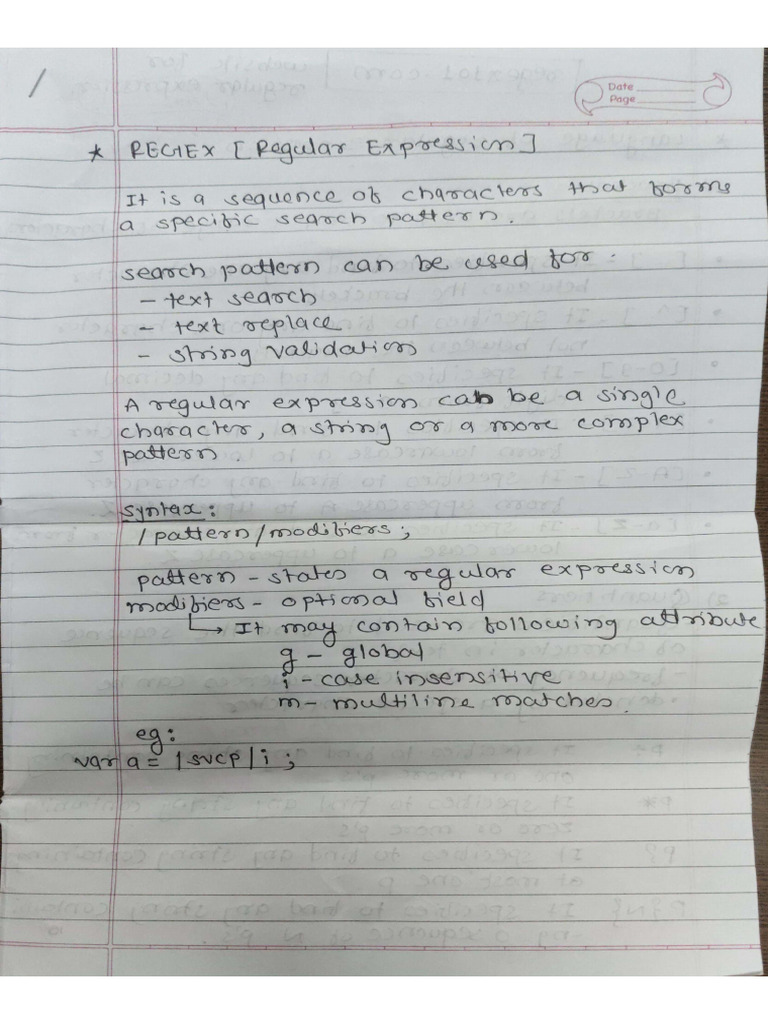 /
Date
Page
* REGEX [Regular Expression]
It is a sequence of characters that forms
a specific search pattern.
search pattern can be used for :
- text search
- text replace
- string validation
A regular expression can be a single
character, a string or a more complex
pattern.
syntax :
/pattern/modifiers ;
pattern - states a regular expression
modifiers - optional field
↳ It may contain following attribute
g - global
i - case insensitive
m - multiline matches.
eg:
var a = /svcp/i ;